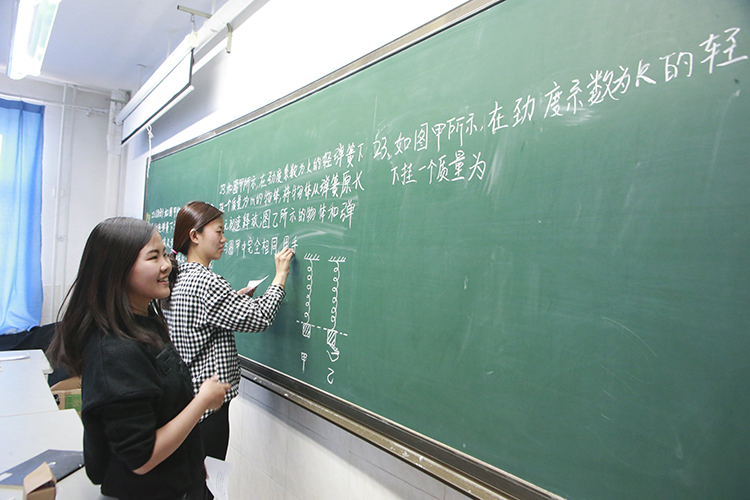 23.如图甲所示,在劲度系数为k的轻弹簧下
一个质量为m的物体,将物体从弹簧原长
释放,图乙所示的物体和弹
图甲中完全相同,
甲
乙
23.如图甲所示,在劲度系数为k的轻
下挂一个质量为